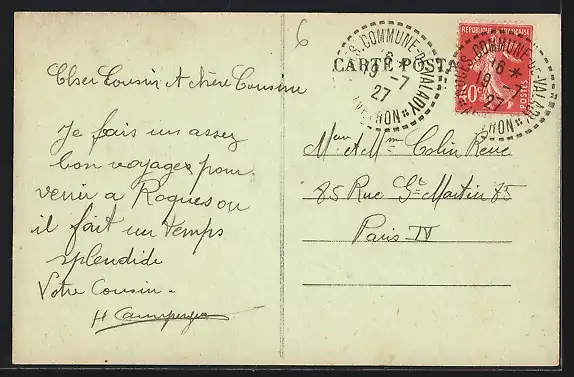 6
CARTE POSTALE
NUCES COMMUNE-DE-VALADY
16 *
19 -7
27
AVEYRON
REPUBLIQUE FRANÇAISE
40c
POSTES
Cher Cousin et chère Cousine
Je fais un assez
bon voyages pour
venir a Roques ou
il fait un temps
splendide
Votre Cousin -
H
Mr et Mme Colin René
85 Rue St Martin 85
Paris IV